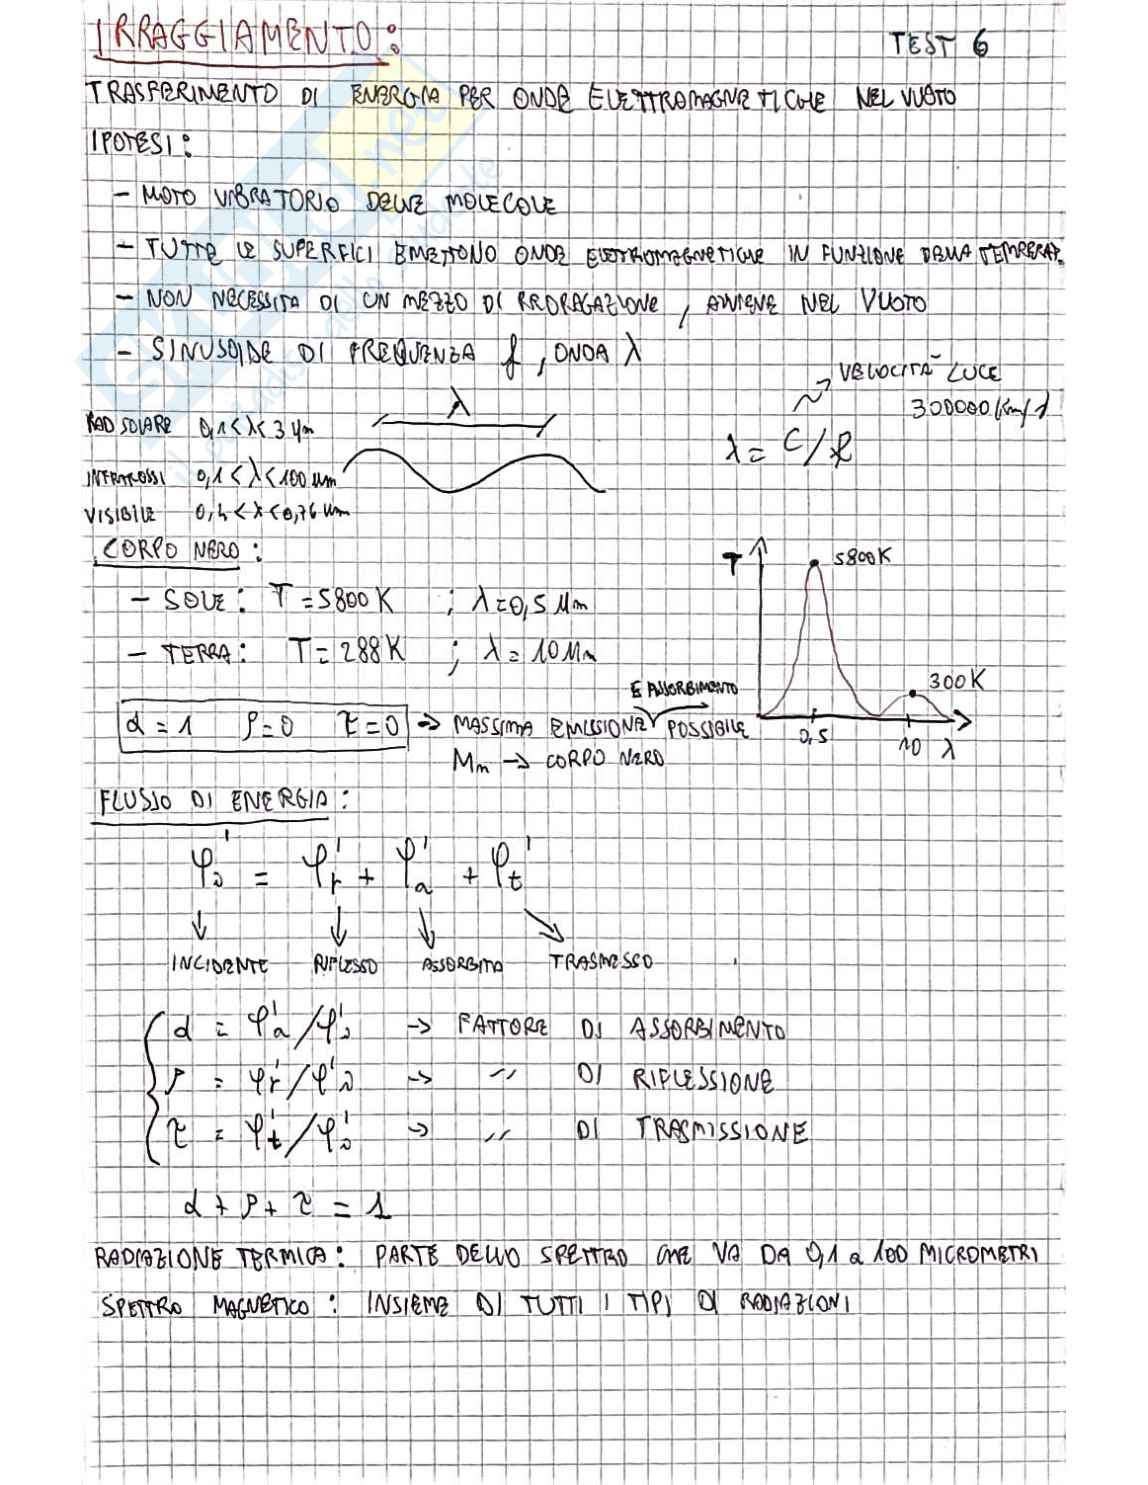 IRRAGGIAMENTO:
TEST 6
TRASFERIMENTO DI ENERGIA PER ONDE ELETTROMAGNETICHE NEL VUOTO
IPOTESI:
- MOTO VIBRATORIO DELLE MOLECOLE
- TUTTE LE SUPERFICI EMETTONO ONDE ELETTROMAGNETICHE IN FUNZIONE DELLA TEMPERAT.
- NON NECESSITA DI UN MEZZO DI PROPAGAZIONE, AVVIENE NEL VUOTO
- SINUSOIDE DI FREQUENZA f, ONDA λ
VELOCITÀ LUCE
300000 Km/s
λ
RAD SOLARE 0,1<λ<3 μm
λ = C/f
INFRAROSSI 0,1<λ<100 μm
VISIBILE 0,4<λ<0,76 μm
CORPO NERO:
T
5800K
- SOLE: T=5800K ; λ=0,5 μm
- TERRA: T=288K ; λ=10 μm
300K
E ASSORBIMENTO
α=1 ρ=0 τ=0 → MASSIMA EMISSIONE POSSIBILE
0,5 10 λ
Mn → CORPO NERO
FLUSSO DI ENERGIA:
φ'i = φ'r + φ'a + φ't
INCIDENTE RIFLESSO ASSORBITO TRASMESSO
α = φ'a/φ'i → FATTORE DI ASSORBIMENTO
ρ = φ'r/φ'i → " DI RIFLESSIONE
τ = φ't/φ'i → " DI TRASMISSIONE
α + ρ + τ = 1
RADIAZIONE TERMICA: PARTE DELLO SPETTRO CHE VA DA 0,1 a 100 MICROMETRI
SPETTRO MAGNETICO: INSIEME DI TUTTI I TIPI DI RADIAZIONI